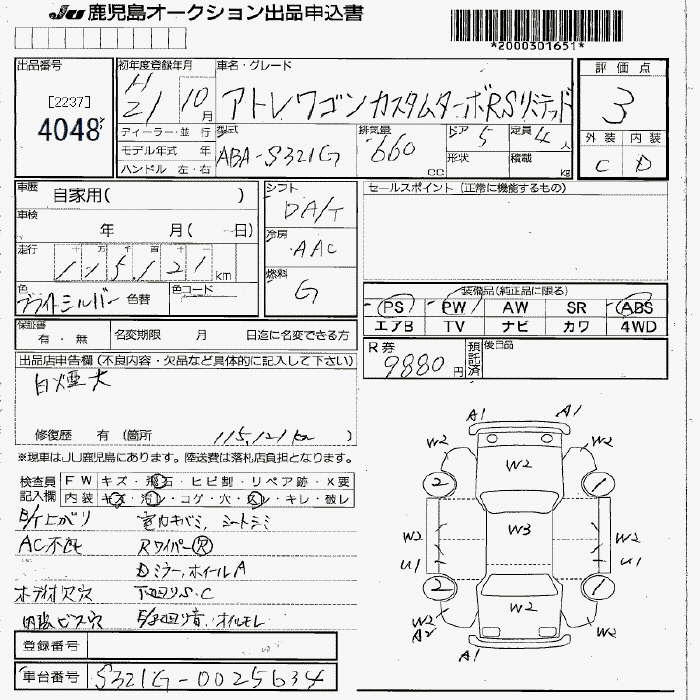 JU 鹿児島オークション出品申込書
*2000301651*
出品番号
[2237]
4048
初年度登録年月
H
21 10月
車名・グレード
アトレワゴンカスタムターボRSリミテッド
評価点
3
外装 内装
C D
ディーラー・並行
モデル年式 年
ハンドル 左・右
型式
ABA-S321G
排気量
660
cc
ドア 5
形状
定員 4人
積載 kg
車歴
自家用( )
車検
年 月( 日)
走行
十 万 千 百 十 一
115,121 km
色
ブライトシルバー 色替
色コード
シフト
DA/T
冷房
AAC
燃料
G
セールスポイント (正常に機能するもの)
装備品(純正品に限る)
PS PW AW SR ABS
エアB TV ナビ カワ 4WD
保証書
有・無
名変期限 月 日迄に名変できる方
R券
9880円
預託済
後日品
出品店申告欄(不良内容・欠品など具体的に記入して下さい)
白煙大
修復歴 有 (箇所 115,121km )
※現車はJU鹿児島にあります。陸送費は落札店負担となります。
検査員記入欄
FW キズ・飛石・ヒビ割・リペア跡・X要
内装 キズ・汚レ・コゲ・穴・スレ・キレ・破レ
B/T上がり
室内キバミ、シートシミ
AC不良
Rワイパー欠
Dミラー,ホイールA
オーディオ欠穴
下回りS.C
内張ビス穴
E/g回り音.オイルモレ
登録番号
車台番号
S321G-0025634
A1 A1
W2 W2
W2
2 1
W3
W2 W2
U1 U1
2 1
W2
W2 W2
A2
A1 A1